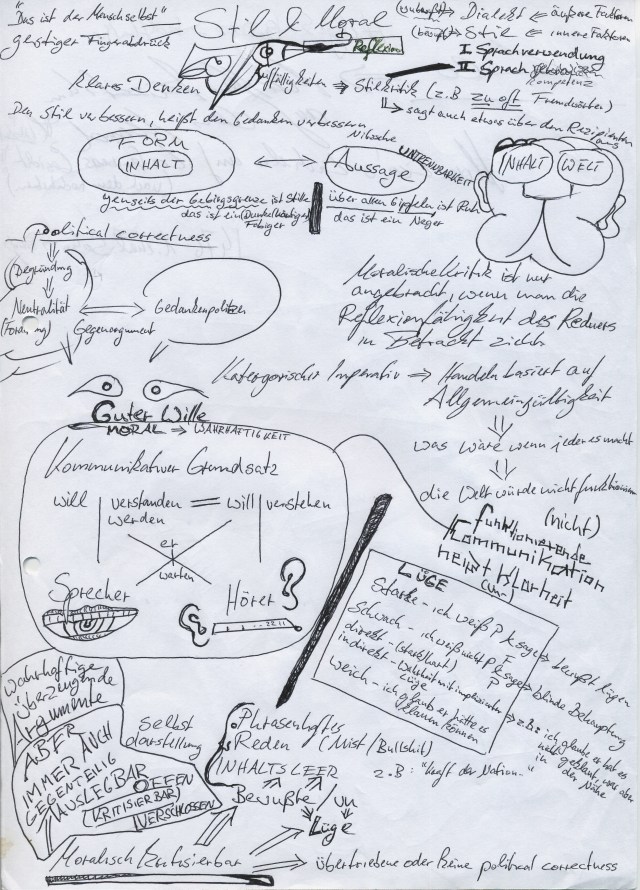 "Das ist der Mensch selbst"
geistiger Fingerabdruck
Stil & Moral
Reflexion
Dialekt ⇐ äußere Faktoren
Stil ⇐ innere Faktoren
I Sprachverwendung
II Sprach
kompetenz
klares Denken
⇒ Stilkritik (z.B zu oft Fremdwörter)
↳ sagt auch etwas über den Rezipienten aus
Den Stil verbessern, heißt den Gedanken verbessern
FORM
INHALT
Aussage
UNTRENNBARKEIT
INHALT
WELT
jenseits der Gebirgsgrenze ist Stille
das ist ein
über allen Gipfeln ist Ruh
das ist ein Neger
political correctness
Begründung
Neutralität
Gedankenpolizei
Gegenargument
Moralische Kritik ist nur
angebracht, wenn man die
Reflexionfähigkeit des Redners
in Betracht zieht
Kategorischer Imperativ ⇒ Handeln basiert auf
Allgemeingültigkeit
was wäre wenn jeder es macht
die Welt würde nicht funktionieren
(nicht)
funktionierende
Kommunikation
heißt Klarheit
(Un-)
Guter Wille
MORAL ⇒ WAHRHAFTIGKEIT
Kommunikativer Grundsatz
will | verstanden = will | verstehen
werden
er
warten
Sprecher
Hörer
LÜGE
Starke - ich weiß P & sage F ⇒ bewußt lügen
Schwach - ich weiß nicht P & sage P ⇒ blinde Behauptung
direkt - (stark)
indirekt - Wahrheit mit
Lüge
weich - ich glaub er hätte es
klauen können
z.B: ich glaube, er hat es
geklaut, war aber
in der Nähe
wahrhaftige
überzeugende
Argumente
ABER
IMMER AUCH
GEGENTEILIG
AUSLEGBAR
OFFEN
(KRITISIERBAR)
VERSCHLOSSEN
Selbst
darstellung
Phrasenhaftes
Reden (Mist/Bullshit)
INHALTSLEER
z.B: "Kraft der Nation-"
Bewußte / un
Lüge
Moralisch Kritisierbar ⇒ übertriebene oder keine political correctness